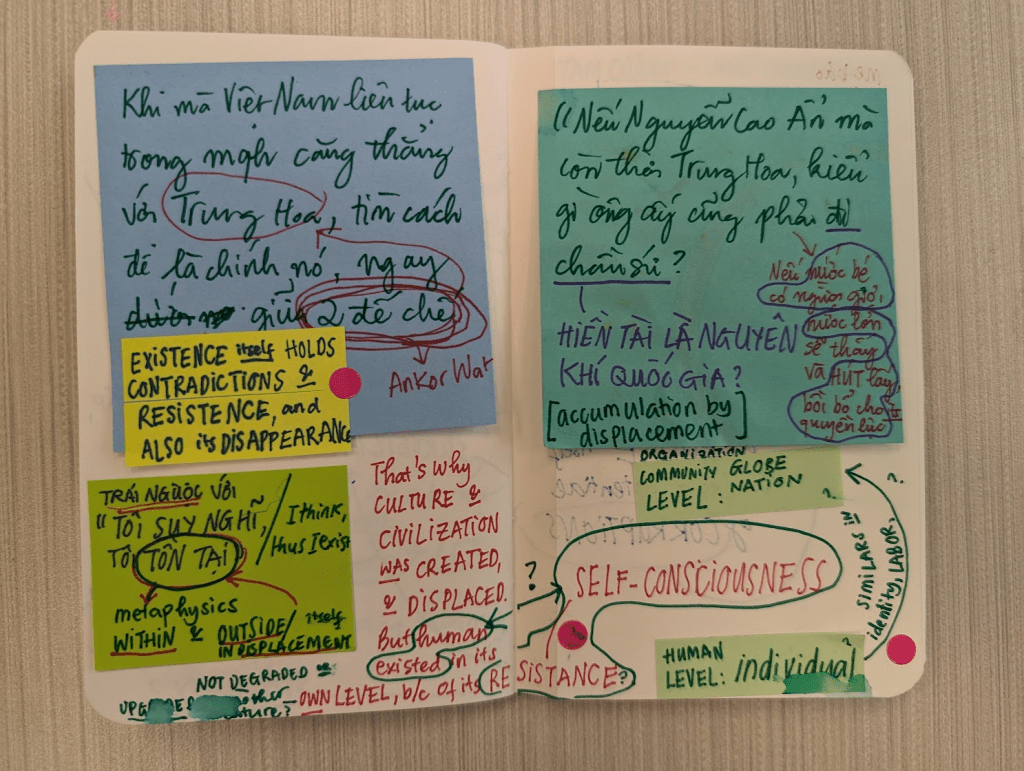 Khi mà Việt Nam liên tục
trong mqh căng thẳng
với Trung Hoa, tìm cách
để là chính nó, ngay
giữa 2 đế chế
Ankor Wat
EXISTENCE itself HOLDS
CONTRADICTIONS &
RESISTENCE, and
ALSO its DISAPPEARANCE
TRÁI NGƯỢC VỚI
"TÔI SUY NGHĨ,
TÔI TỒN TẠI
/ I think,
thus I exist
metaphysics
WITHIN & OUTSIDE / itself
IN DISPLACEMENT
That's why
CULTURE &
CIVILIZATION
WAS CREATED,
& DISPLACED.
But human
existed in its
OWN LEVEL, b/c of its RESISTANCE?
NOT DEGRADED or
"Nếu Nguyễn Cao Ẩn mà
còn thời Trung Hoa, kiểu
gì ông ấy cũng phải đi
chầu sứ?
Nếu nước bé
có người giỏi,
nước lớn
sẽ thấy
và HÚT lấy,
bồi bổ cho
quyền lực
HIỀN TÀI LÀ NGUYÊN
KHÍ QUỐC GIA?
[accumulation by
displacement]
ORGANIZATION
COMMUNITY GLOBE
LEVEL: NATION
?
?
?
SELF-CONSCIOUSNESS
SIMILARS IN
identity, LABOR,
HUMAN
LEVEL: individual
?